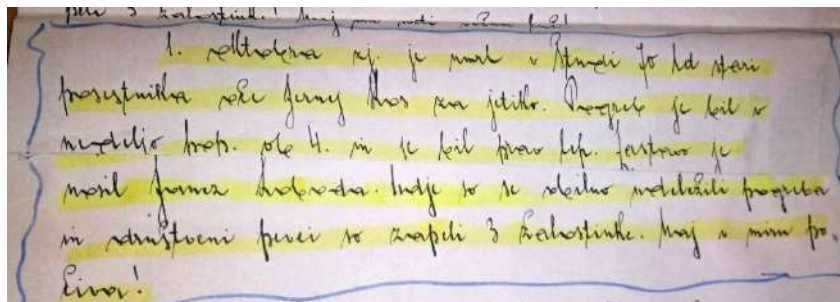 peli 3 žalostinke! Naj mu
1. oktobra zj. je umrl v Študi 70 let stari
posestnika oče Jernej Kos za jetiko. Pogreb je bil v
nedeljo pop. ob 4. in je bil prav lep. Zastavo je
nosil Janez. Ludje so se obilno udeležili pogreba
in društveni pevci so zapeli 3 žalostinke. Naj v miru po-
čiva!